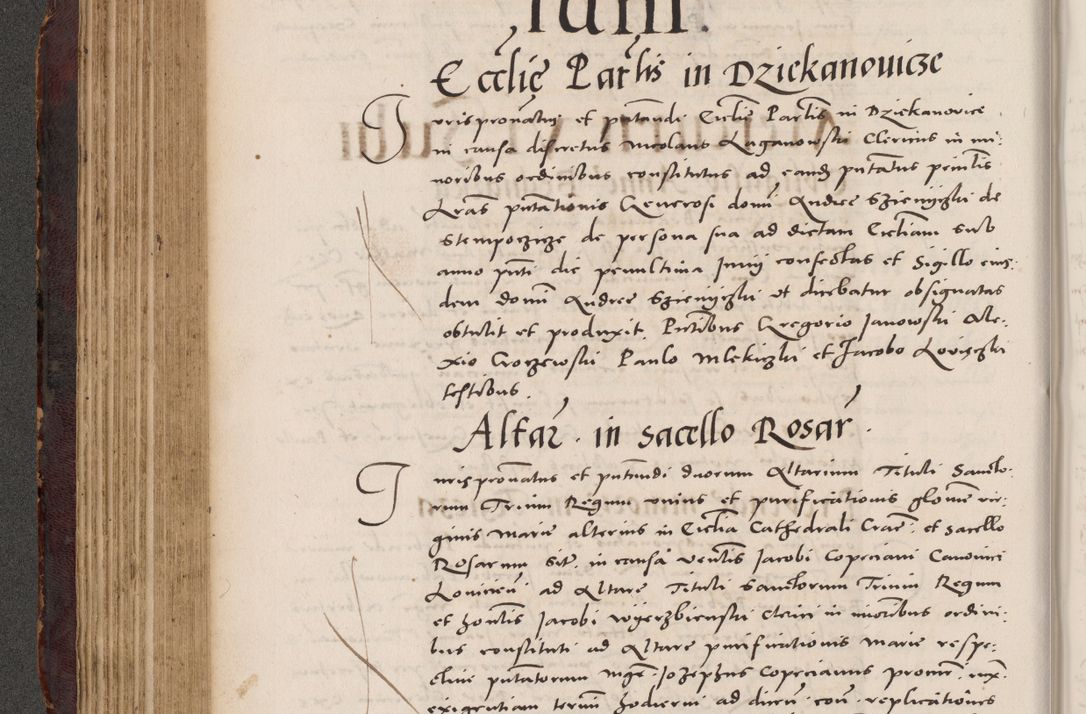 Iunii.
Ecclię Parlis in Dziekanouicze
Iurispronatus et putandi Ecclie Parlis in Dziekanovice
in causa discretus Nicolaus Laganowski Clericus in mi:
noribus ordinibus constitutus ad eand putatus penitis
Lras putationis Generosi domi Andree
de persona sua ad dictam Eccliam sub
anno pnti die penultima Junij confectas et Sigillo eius:
dem domi Andree ut dicebatur obsignatas
obtulit et produxit. Pntibus Gregorio Janowski Ale:
xio Croczewski Paulo et Jacobo
testibus.
Altar. in sacello Rosar.
Iurispronatus et putandi duorum Altarium Tituli Sancto:
rum Trium Regum unius et purificationis gloe vir:
ginis Marie alterius in Ecclia Cathedrali Crac. et sacello
Rosarum sit. in causa ventis Jacobi Copeciani Canonici
Lovicien ad Altare Tituli Sanctorum Trium Regum
et hontis Jacobi Clerici in minoribus ordini:
bus constituti ad Altare purificationis Marie respe:
ctive putatorum Mgr. Josephus Copecianus procur.
exigentiam termi hodierni ad dicen. con. replicationes